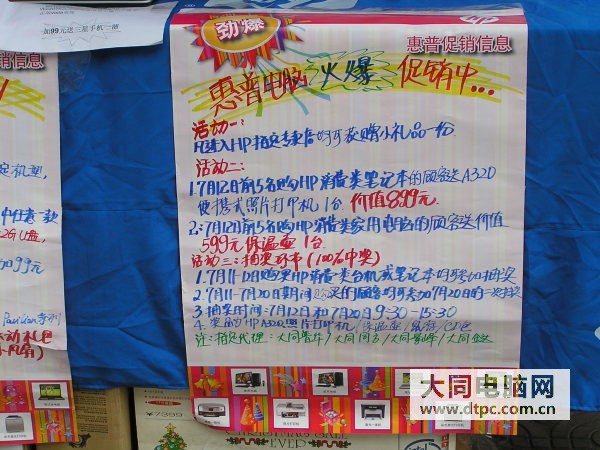 加99元送三星手机一部
信息
劲爆
惠普促销信息
惠普电脑火爆促销中...
活动一:
凡进入HP指定专卖店均可获赠小礼品一份
活动二:
1.7月12日前5名购HP消费类笔记本的顾客送A320
便携式照片打印机1台 价值899元
2.7月12日前5名购HP消费类家用电脑的顾客送价值
599元保温壶1台
活动三:抽奖环节(100%中奖)
1.7月11-12日购买HP消费类台机或笔记本均可参加抽奖
2.7月11-7月20日期间购买的顾客均可参加7月20日的二次抽奖
3.抽奖时间:7月12日和7月20日9:30-15:30
4.奖品为HP A320照片打印机/保温壶/鼠标/CD包
注:指定代理:大同
中任意一款
2G U盘
加99元
Pavilion
¥7399
CHRISTMAS BALL
EVER
大同电脑网
www.dtpc.com.cn